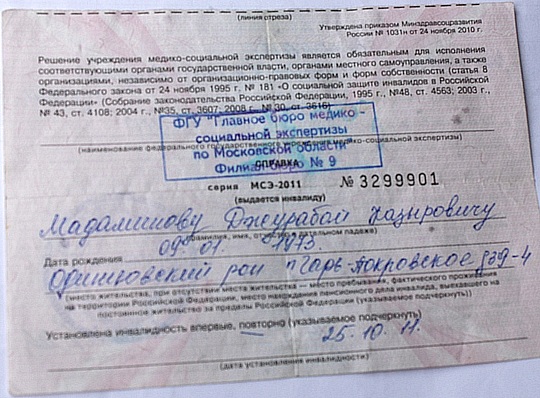 (линия отреза)
Утверждена приказом Минздравсоцразвития
России № 1031н от 24 ноября 2010 г.
Решение учреждения медико-социальной экспертизы является обязательным для исполнения
соответствующими органами государственной власти, органами местного самоуправления, а также
организациями, независимо от организационно-правовых форм и форм собственности (статья 8
Федерального закона от 24 ноября 1995 г. № 181 «О социальной защите инвалидов в Российской
Федерации» (Собрание законодательства Российской Федерации, 1995 г., №48, ст. 4563; 2003 г.,
№ 43, ст. 4108; 2004 г., №35, ст. 3607; 2008 г., № 30, ст. 3616)
ФГУ "Главное бюро медико -
социальной экспертизы
по Московской области"
Филиал бюро № 9
(наименование федерального государственного учреждения медико-социальной экспертизы)
СПРАВКА
серия МСЭ-2011 № 3299901
(выдается инвалиду)
Мадаминову Джурабой Назировичу
(фамилия, имя, отчество в дательном падеже)
Дата рождения 09 01 1973
Одинцовский рон п Горь-Покровское д39-4
(место жительства, при отсутствии места жительства — место пребывания, фактического проживания
на территории Российской Федерации, место нахождения пенсионного дела инвалида, выехавшего на
постоянное жительство за пределы Российской Федерации (указываемое подчеркнуть))
Установлена инвалидность впервые, повторно (указываемое подчеркнуть)
25.10.11.
(дата установления инвалидности)